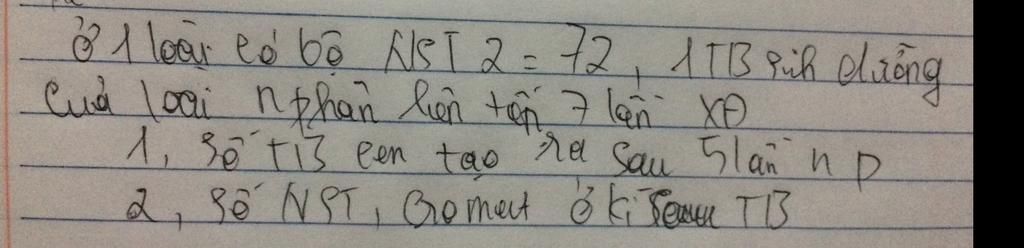 Ở 1 loài có bộ NST 2 = 72, 1 TB sinh dưỡng
của loài n phân liên tiến 7 lần XĐ
1, số TB con tạo ra sau 5 lần n p
2, số NST, Cromeut ở kì TB